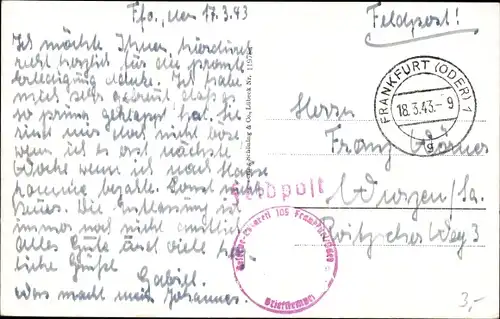 Ffo., den 17.3.43
Ich möchte Ihnen,
recht herzlich für die prompte
Erledigung danke. Ich habe
mich sehr gefreut daß es
so prima geklappt hat. Sie
sind mir doch nicht böse
wenn ich es erst nächste
Woche wenn ich nach Hause
komme bezahle. Sonst nichts
Neues. Die Entlassung ist
immer noch nicht amtlich
Alles Gute und viele herz-
liche Grüße
Gabriel.
Was macht mein Johannes.
Feldpost!
FRANKFURT (ODER) 1
18.3.43.-9
g
Herrn
Franz
Wurzen/Sa.
Roitzscher Weg 3
Feldpost
105 Frankfurt/Oder
Briefstempel
& Co., Lübeck Nr.
3,-